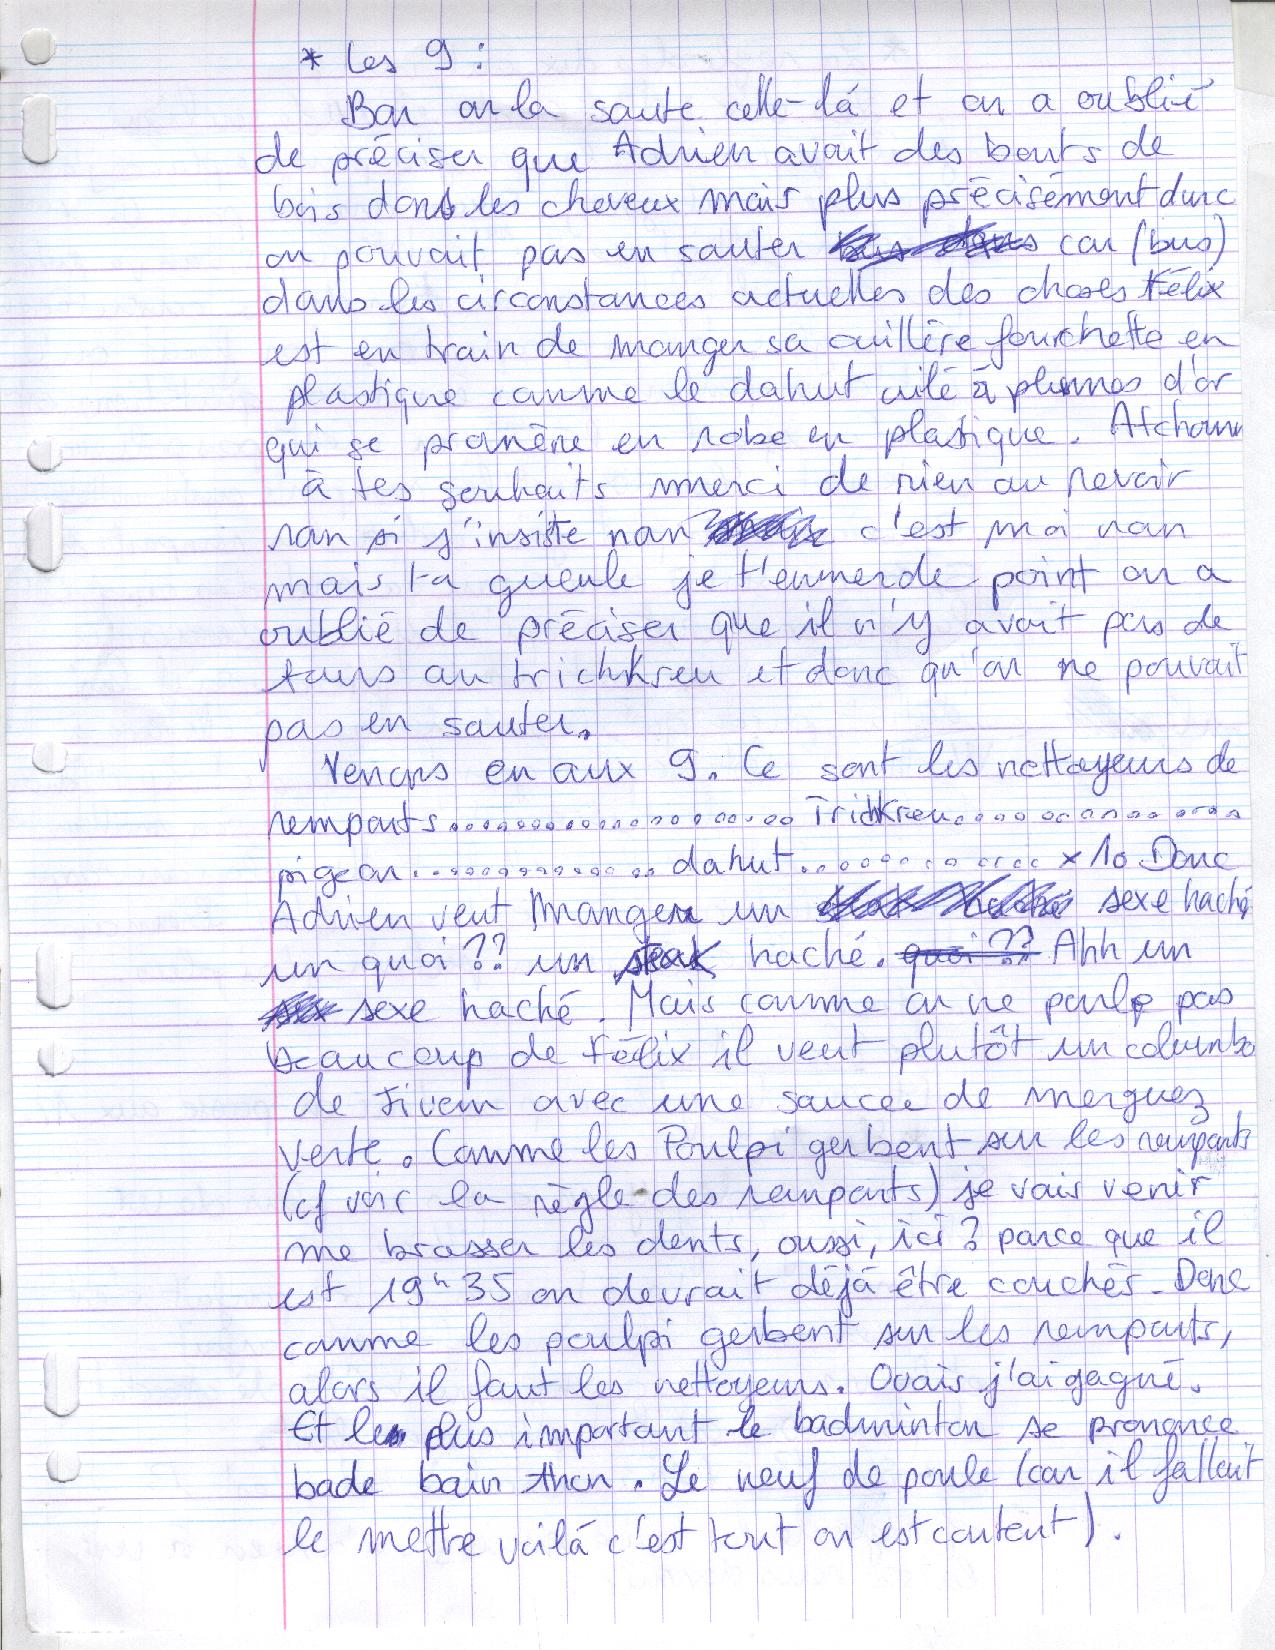 * Les 9 :
Bon on la saute celle-là et on a oublié
de préciser que Adrien avait des bouts de
bois dans les cheveux mais plus précisément dunc
on pouvait pas en sauter car (bus)
dans les circonstances actuelles des choses Félix
est en train de manger sa cuillère fourchette en
plastique comme le dahut ailé à plumes d'or
qui se promène en robe en plastique. Atchoum
à tes souhaits merci de rien au revoir
nan si j'insiste nan c'est moi nan
mais ta gueule je t'emmerde point on a
oublié de préciser que il n'y avait pas de
tours au trichkreu et donc qu'on ne pouvait
pas en sauter.
Venons en aux 9. Ce sont les nettoyeurs de
remparts.................... Trichkreu..............
pigeon................ dahut............ x 10 Donc
Adrien veut manger un sexe haché
un quoi ?? un steak haché. quoi ?? Ahh un
sexe haché. Mais comme on ne parle pas
beaucoup de Félix il veut plutôt un columbo
de avec une sauce de merguez
verte. Comme les Poulpi gerbent sur les remparts
(cf voir la règle des remparts) je vais venir
me brosser les dents, aussi, ici ? parce que il
est 19h35 on devrait déjà être couchés. Donc
comme les poulpi gerbent sur les remparts,
alors il faut les nettoyeurs. Ouais j'ai gagné.
Et le plus important le badminton se prononce
bade bain thon. Le neuf de poule (car il fallait
le mettre voilà c'est tout on est content).